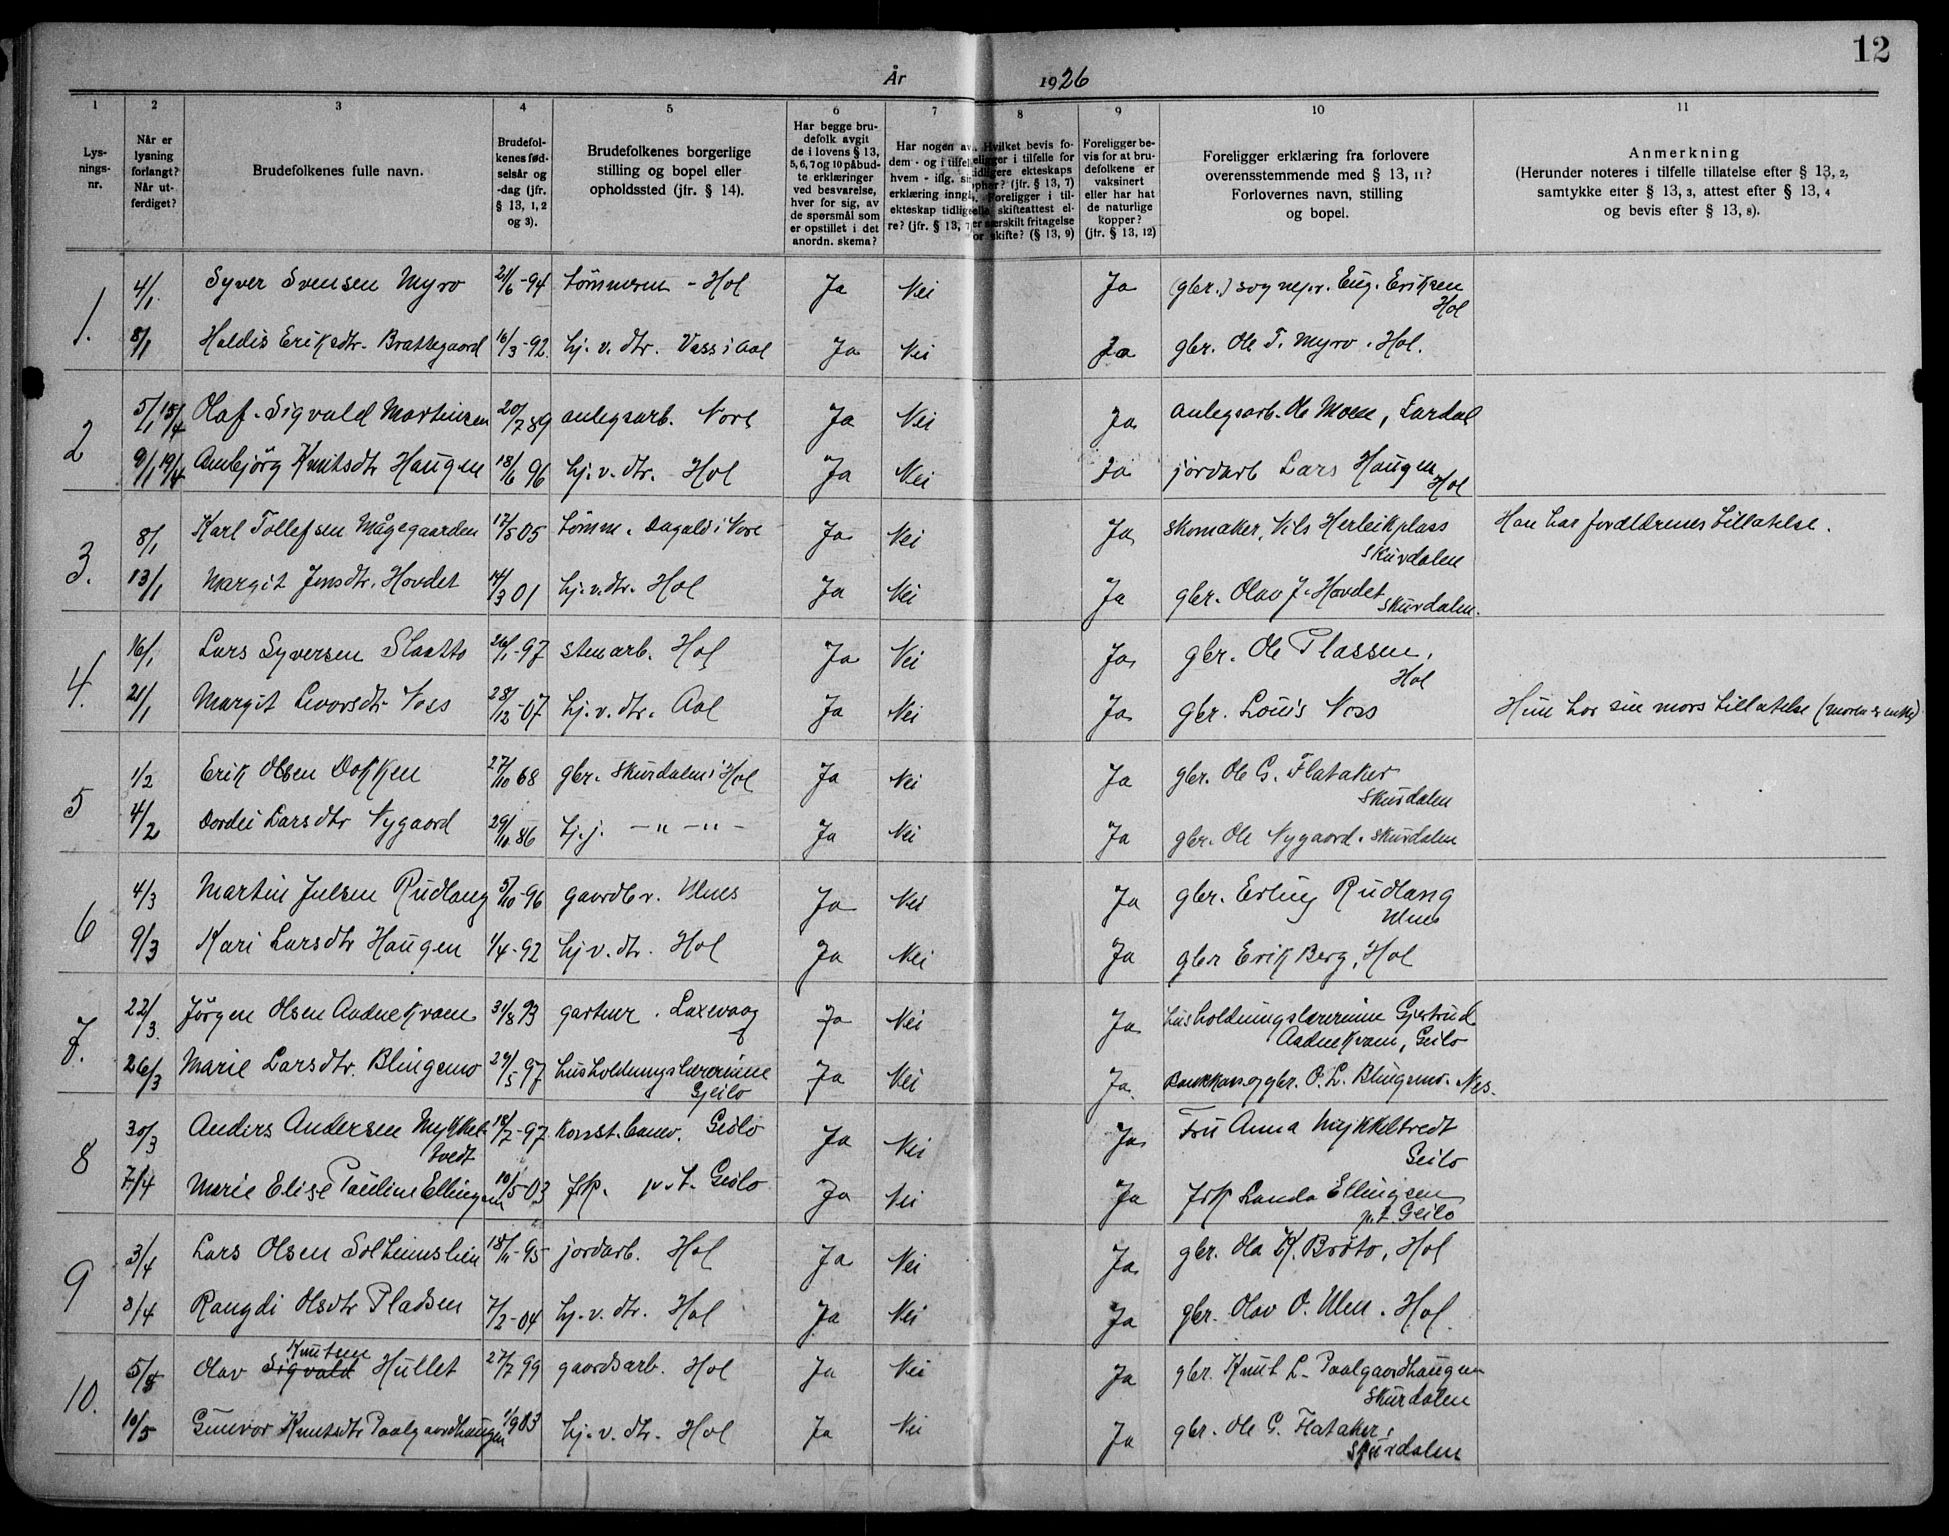 12
År 1926
1 2 3 4 5 6 7 8 9 10 11
Lysningsnr.
Når er lysning forlangt? Når utferdiget?
Brudefolkenes fulle navn.
Brudefolkenes fødselsår og -dag (jfr. § 13, 1, 2 og 3).
Brudefolkenes borgerlige stilling og bopel eller opholdssted (jfr. § 14).
Har begge brudefolk avgit de i lovens § 13, 5, 6, 7 og 10 påbudte erklæringer ved besvarelse, hver for sig, av de spørsmål som er opstillet i det anordn. skema?
Har nogen av dem - og i tilfelle hvem - iflg. sin erklæring inngått ekteskap tidligere? (jfr. § 13, 7
Hvilket bevis foreligger i tilfelle for tidligere ekteskaps ophør? (jfr. § 13, 7) Foreligger i tilfelle skifteattest eller særskilt fritagelse for skifte? (§ 13, 9)
Foreligger bevis for at brudefolkene er vaksinert eller har hat de naturlige kopper? (jfr. § 13, 12)
Foreligger erklæring fra forlovere overensstemmende med § 13, 11? Forlovernes navn, stilling og bopel.
Anmerkning
(Herunder noteres i tilfelle tillatelse efter § 13, 2, samtykke etter § 13, 3, attest efter § 13, 4 og bevis efter § 13, 8).
1. 4/1 Syver Svensen Myro 21/6-94 tømmerm - Hol Ja Nei Ja (gbr.) sognepr. Eug. Eriksen Hol
8/1 Haldis Eriksdtr. Brattegaard 16/3-92. hj. v. dtr. Vass i Aal Ja Nei Ja gbr. Ole T. Myro. Hol.
2 5/1 15/4 Olaf Sigvald Martinsen 20/7 89 anlegsarb. Nore Ja Nei Ja anlegsarb. Ole Moen, Lardal
9/1 19/4 Ambjörg Knutsdtr Haugen 18/6 96 hj. v. dtr. Hol Ja Nei Ja jordarb Lars Haugen Hol
3. 8/1 Karl Tollefsen Mågegaarden 17/5 05 tømm. Dagali i Nore Ja Nei Ja skomaker, Nils Herleikplass Skurdalen Han har foreldrenes tillatelse.
13/1 Margit Jensdtr. Hovdet 14/3 01 hj. v. dtr. Hol Ja Nei Ja gbr. Olav J. Hovdet Skurdalen.
4. 16/1 Lars Syversen Slaatto 26/1-97 stenarb. Hol Ja Nei Ja gbr. Ole Plassen, Hol
21/1 Margit Levorsdtr Noss 28/12-07 hj. v. dtr. Aal Ja Nei Ja gbr. Louis Noss Hun har sin mors tillatelse (moren er enke)
5 1/2 Erik Olsen Dokken 27/10 68 gbr. Skurdalen i Hol Ja Nei Ja gbr. Ole G. Flataker Skurdalen
4/2 Dordei Larsdtr Nygaard 29/10. 86 hj. j. - " - " - Ja Nei Ja gbr. Ole Nygaard. Skurdalen
6 4/3 Martin Julsen Rudlang 5/10-96 gaardbr. Ulnes Ja Nei Ja gbr. Erling Rudlang Ulnes
9/3 Kari Larsdtr Haugen 1/4-92 hj v. dtr. Hol Ja Nei Ja gbr Erik Berg, Hol
7. 22/3. Jørgen Olsen Aadnekvam 31/8 93 gartner. Laxevaag Ja Nei Ja husholdningslærerinne Gjertrud Aadnekvam, Geilo
26/3 Marie Larsdtr. Blingsmo 29/5 97 husholdningslærerinne Gjeilo Ja Nei Ja. Bankkas. og gbr. O. L. Blingsmo. Nes.
8 30/3 Anders Andersen Mykkeltvedt 18/7-97 konst. banev. Geilo Ja Nei Ja Fru Anna Mykkeltvedt Geilo
7/4 Marie Elise Pauline Ellingsen 10/5-03 frk. p. t. Geilo Ja Nei Ja frk Landa Ellingsen p. t. Geilo
9 3/4 Lars Olsen Solheimslien 18/11-95 jordarb. Hol Ja Nei Ja gbr. Ola K. Bröto, Hol
8/4 Rangdi Olsdtr Pladsen 7/2-04 hj. v. dtr. Hol Ja Nei Ja gbr. Olav O. Ulen. Hol.
10. 5/5 Olav Sigvald Knutsen Hullet 27/7 99 gaardsarb. Hol Ja Nei Ja gbr. Knut L. Paalgaardhaugen Skurdalen
10/5 Gunvor Knutsdtr Paalgaardhaugen 1/9 03 hj. v. dtr. Hol Ja Nei Ja gbr. Ole G. Flataker, Skurdalen